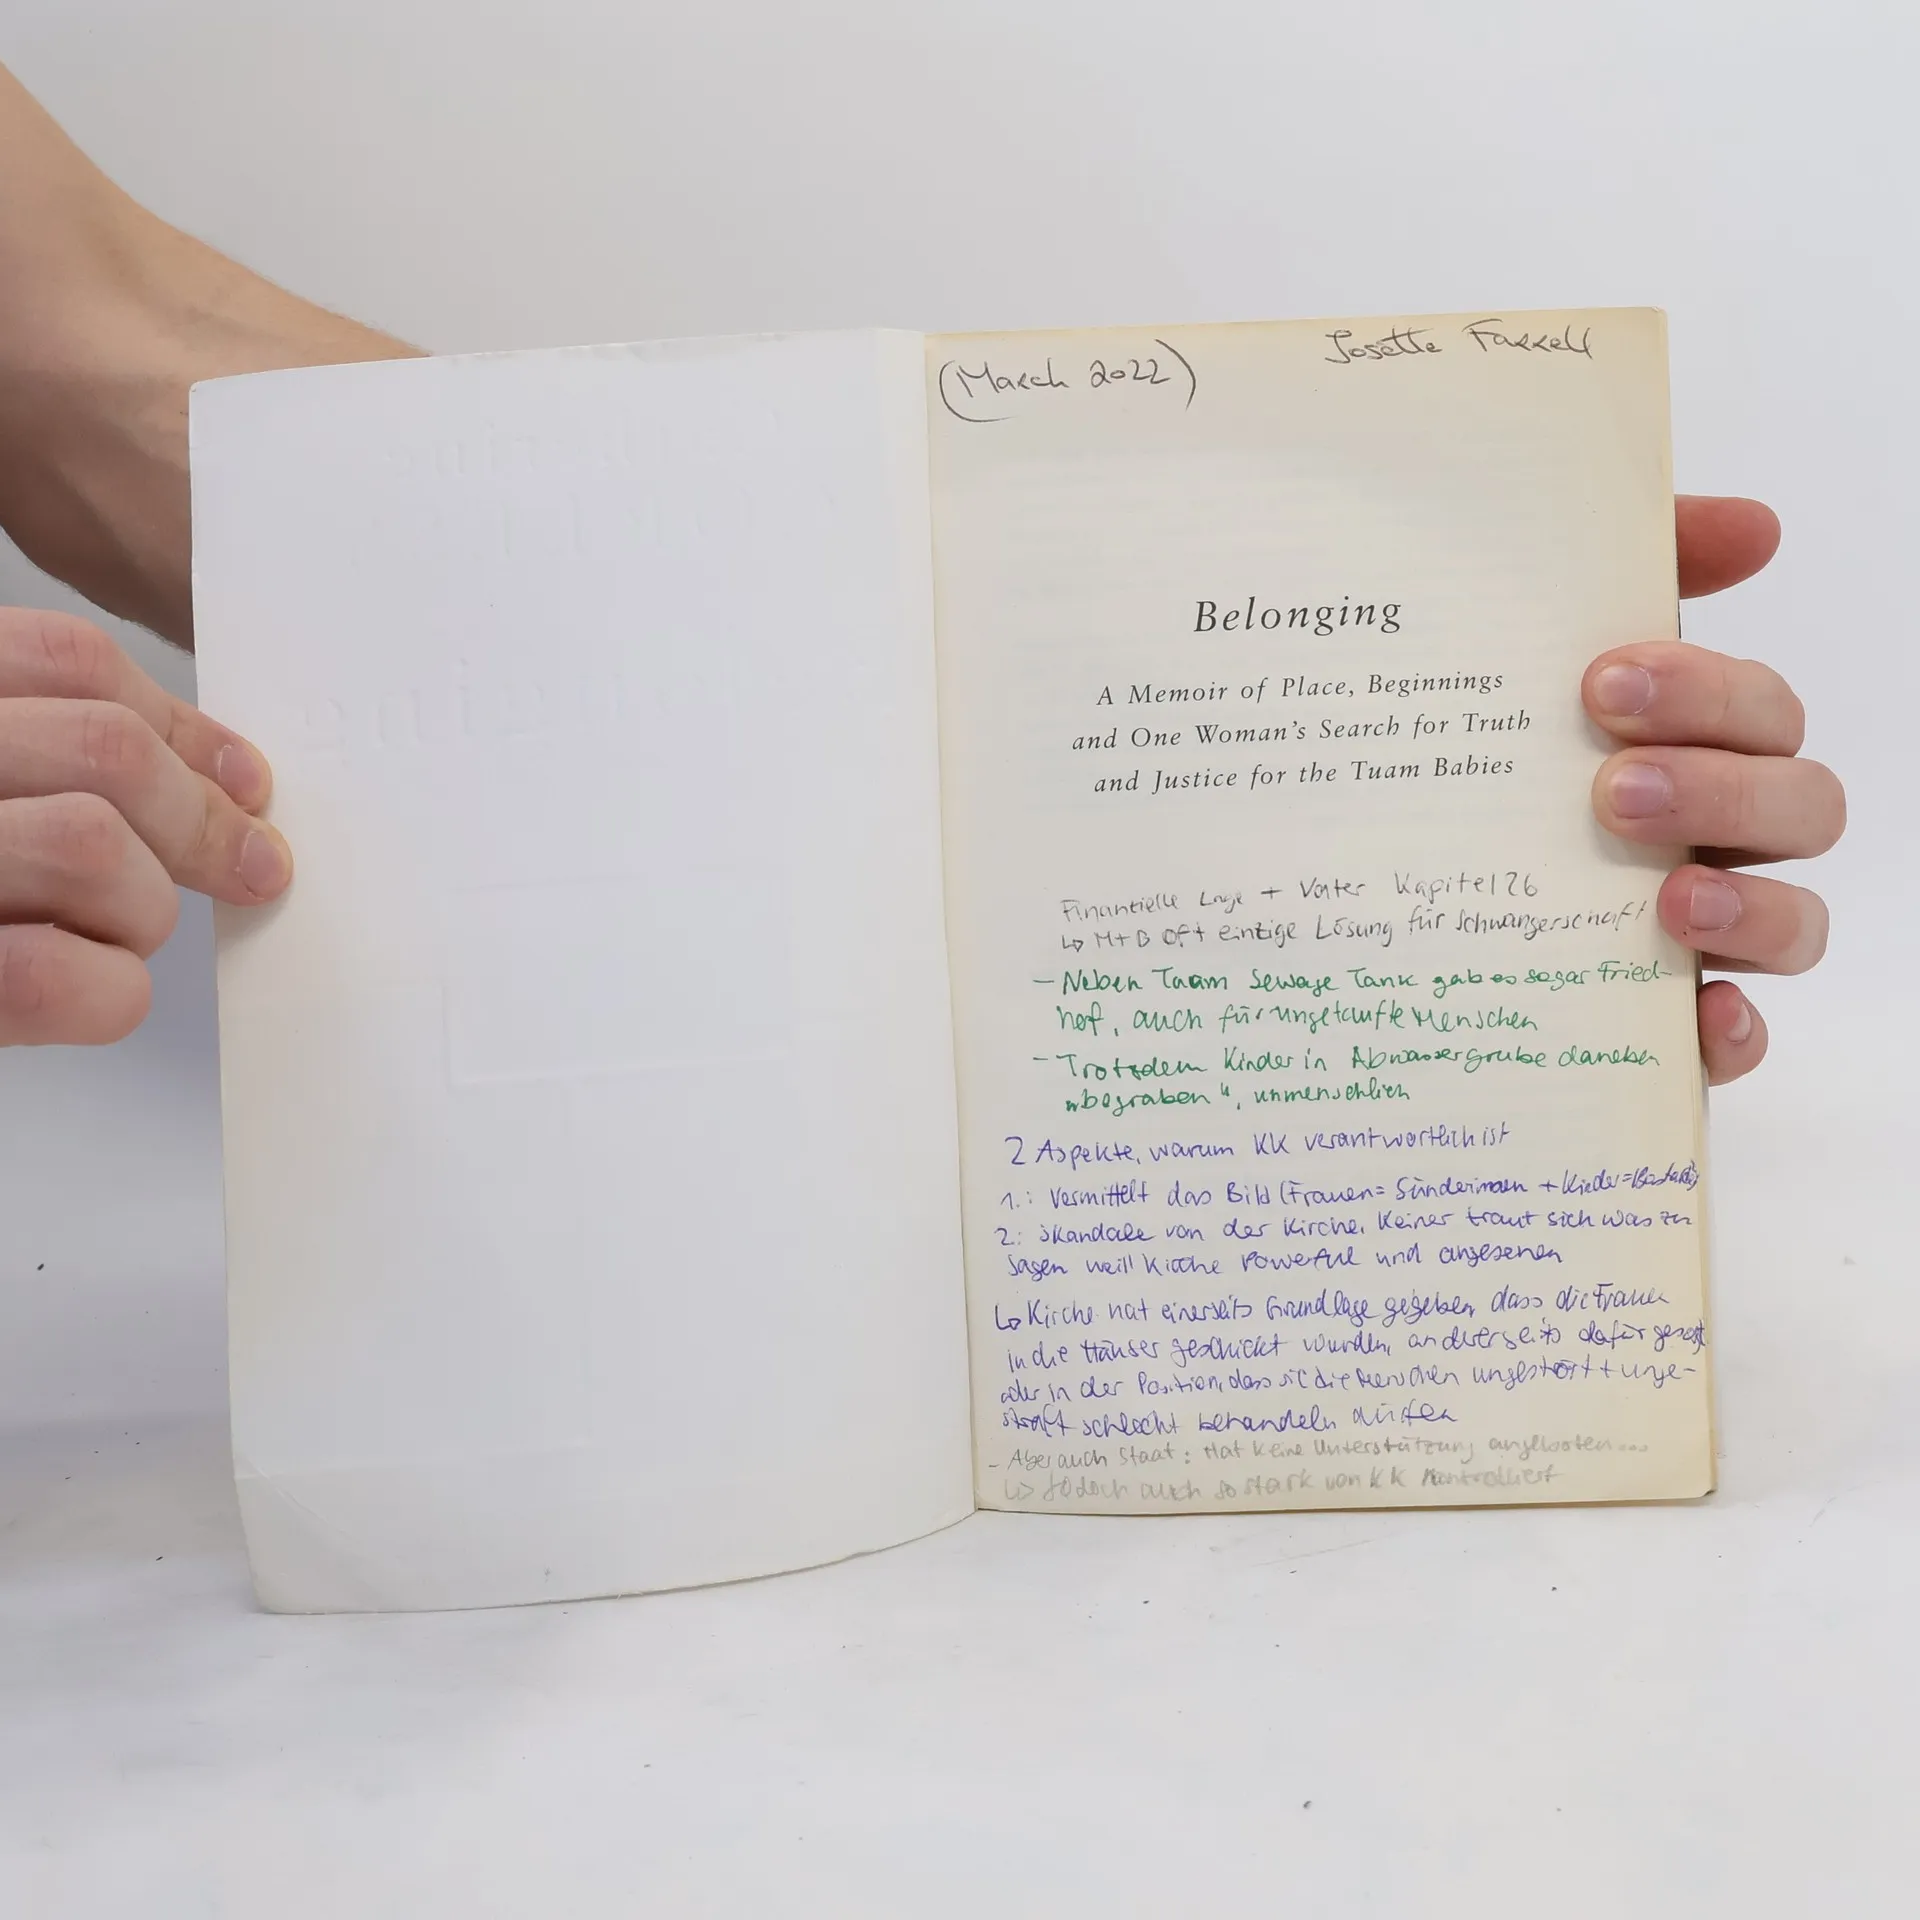 (March 2022)
Josette Farrell
Belonging
A Memoir of Place, Beginnings
and One Woman's Search for Truth
and Justice for the Tuam Babies
Finanzielle Lage + Vater Kapitel 26
↳ M+B oft einzige Lösung für Schwangerschaft
– Neben Tuam Sewage Tank gab es sogar Fried-
hof, auch für ungetaufte Menschen
– Trotzdem Kinder in Abwassergrube daneben
„begraben“, unmenschlich
2 Aspekte, warum KK verantwortlich ist
1.: Vermittelt das Bild (Frauen = Sünderinnen + Kinder = Bastards)
2: Skandale von der Kirche. Keiner traut sich was zu
sagen weil Kirche Powerful und angesehen
↳ Kirche hat einerseits Grundlage gegeben, dass die Frauen
in die Häuser geschickt wurden, andererseits dafür gesorgt
oder in der Position, dass sie die Menschen ungestört + unge-
straft schlecht behandeln dürfen
– Aber auch Staat: Hat keine Unterstützung angeboten...
↳ Jedoch auch so stark von KK kontrolliert